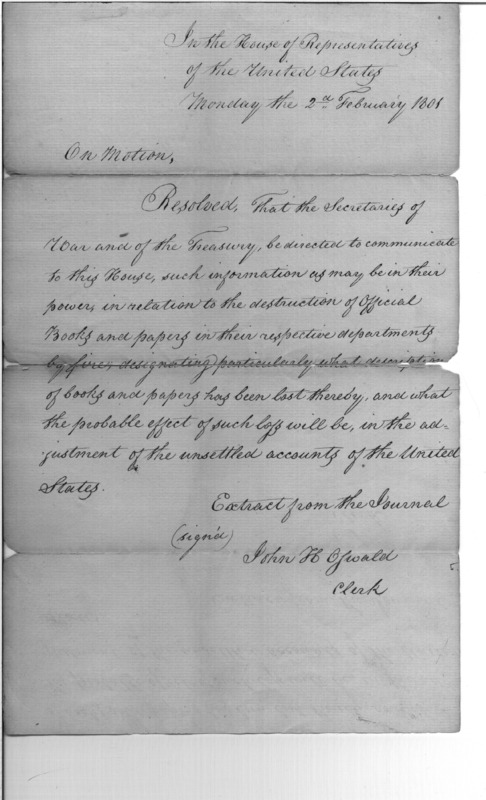 In the House of Representatives
of the United States
Monday the 2d February 1801
On Motion,
Resolved, That the Secretaries of
War and of the Treasury, be directed to communicate
to this House, such information as may be in their
power, in relation to the destruction of Official
Books and papers in their respective departments
by fire; designating particularly what description
of books and papers has been lost thereby, and what
the probable effect of such loss will be, in the ad-
justment of the unsettled accounts of the United
States.
Extract from the Journal
(sign'd)
John H Oswald
Clerk